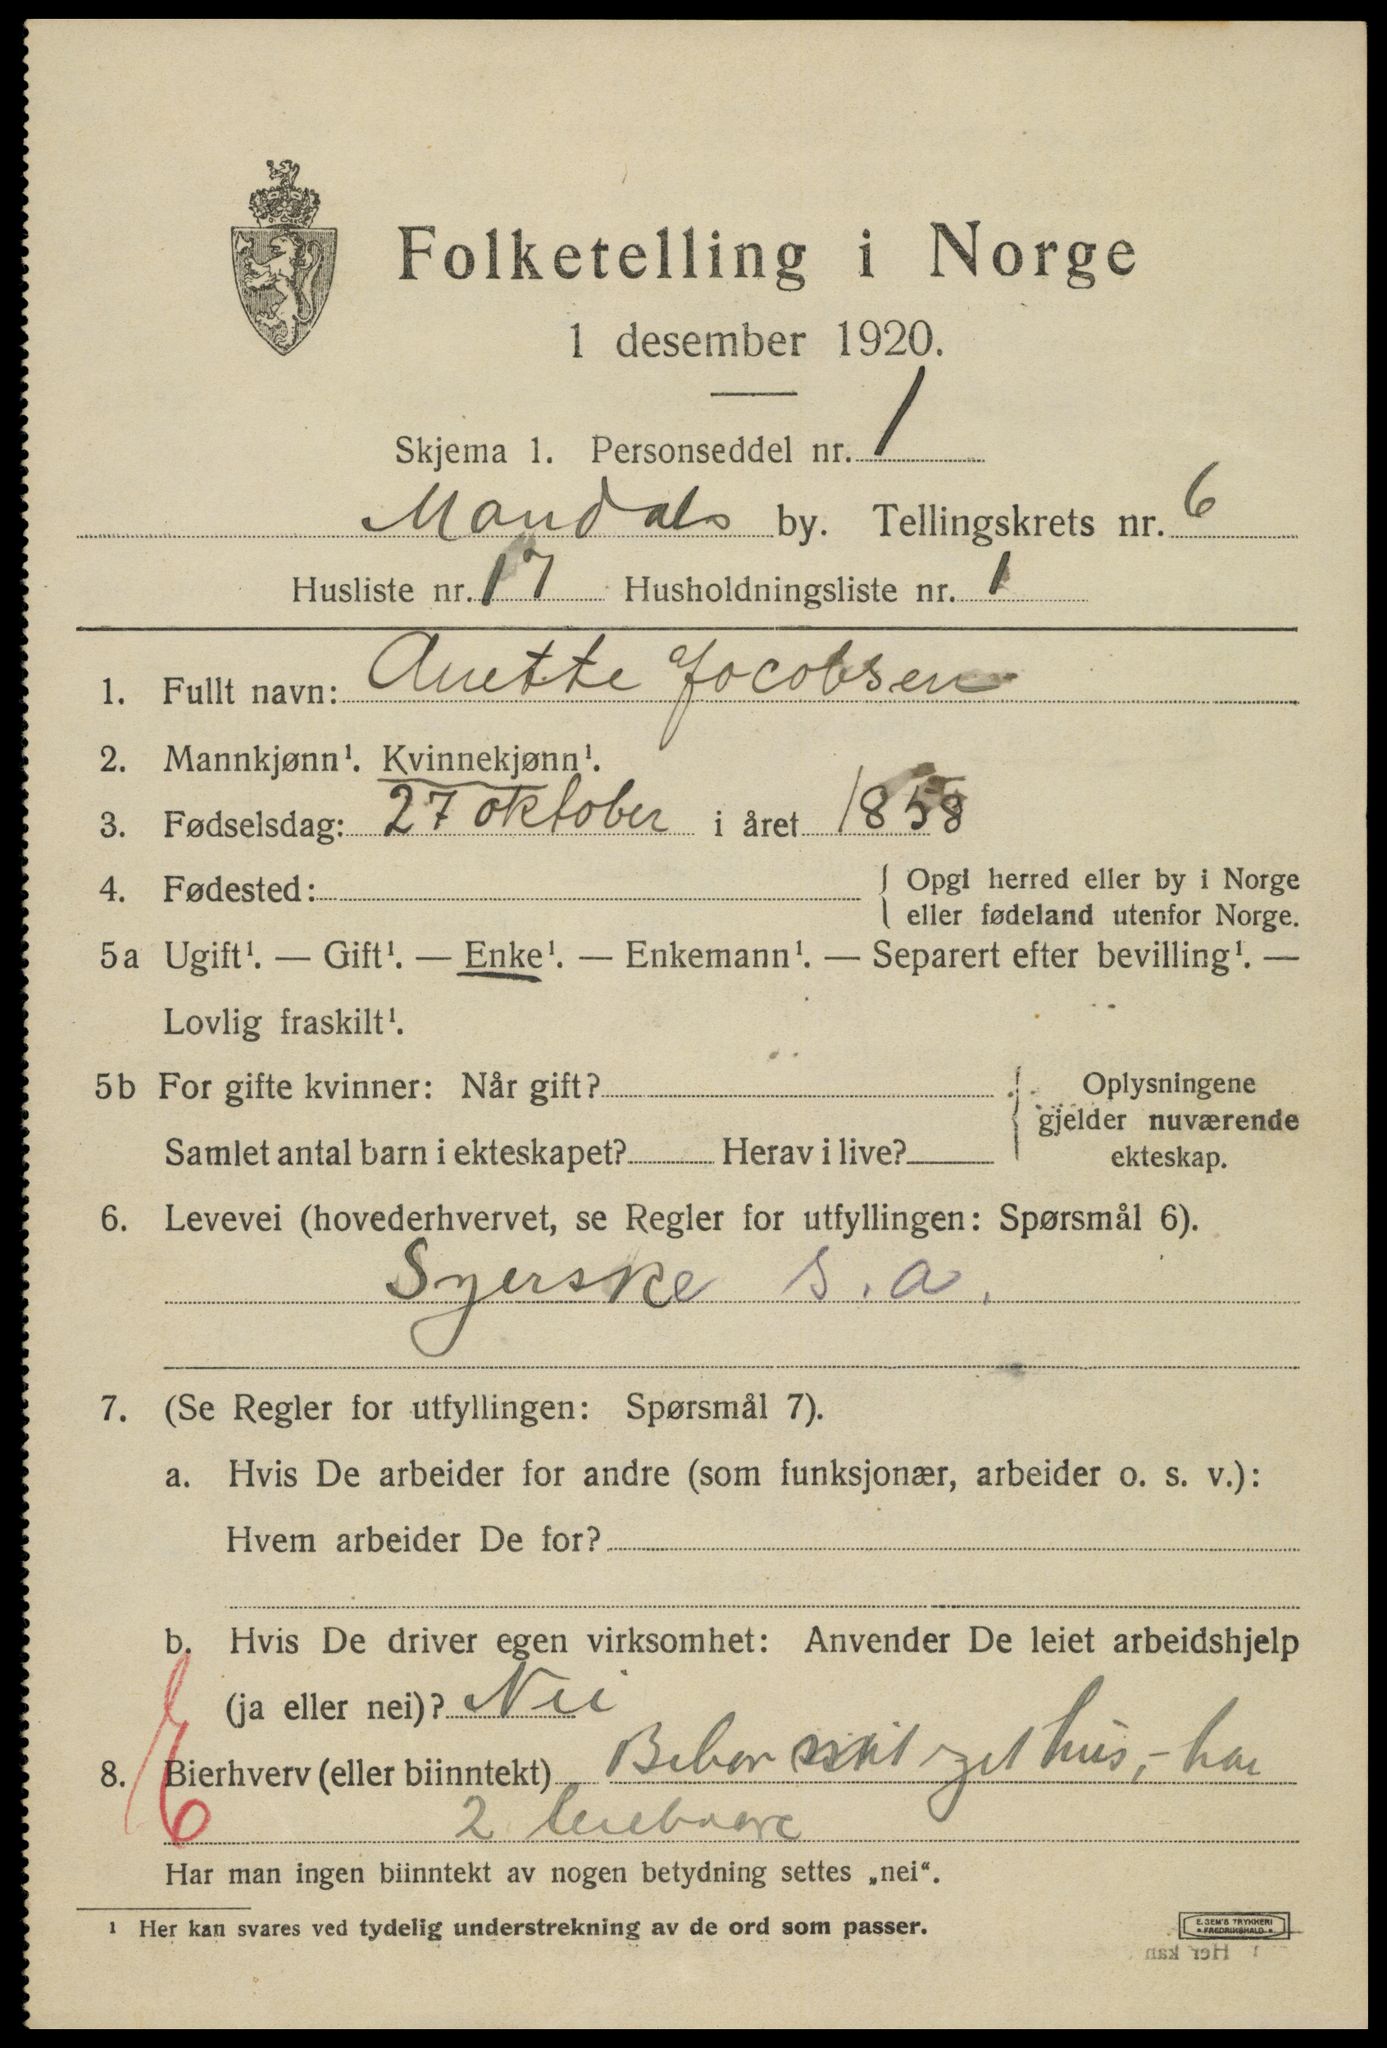 Folketelling i Norge
1 desember 1920.
Skjema 1. Personseddel nr. 1
Mandals by. Tellingskrets nr. 6
Husliste nr. 17 Husholdningsliste nr. 1
1. Fullt navn: Anette Jacobsen
2. Mannkjønn¹. Kvinnekjønn¹.
3. Fødselsdag: 27 oktober i året 1858
4. Fødested: { Opgi herred eller by i Norge
eller fødeland utenfor Norge.
5a Ugift¹. — Gift¹. — Enke¹. — Enkemann¹. — Separert efter bevilling¹. —
Lovlig fraskilt¹.
5b For gifte kvinner: Når gift? { Oplysningene
gjelder nuværende
Samlet antal barn i ekteskapet? Herav i live? ekteskap.
6. Levevei (hovederhvervet, se Regler for utfyllingen: Spørsmål 6).
Syerske s.a.
7. (Se Regler for utfyllingen: Spørsmål 7).
a. Hvis De arbeider for andre (som funksjonær, arbeider o. s. v.):
Hvem arbeider De for?
b. Hvis De driver egen virksomhet: Anvender De leiet arbeidshjelp
(ja eller nei)? Nei
8. Bierhverv (eller biinntekt) Bebor hus, - har
2 leieboere
Har man ingen biinntekt av nogen betydning settes „nei“.
¹ Her kan svares ved tydelig understrekning av de ord som passer.
E. SEM'S TRYKKERI
FREDRIKSHALD